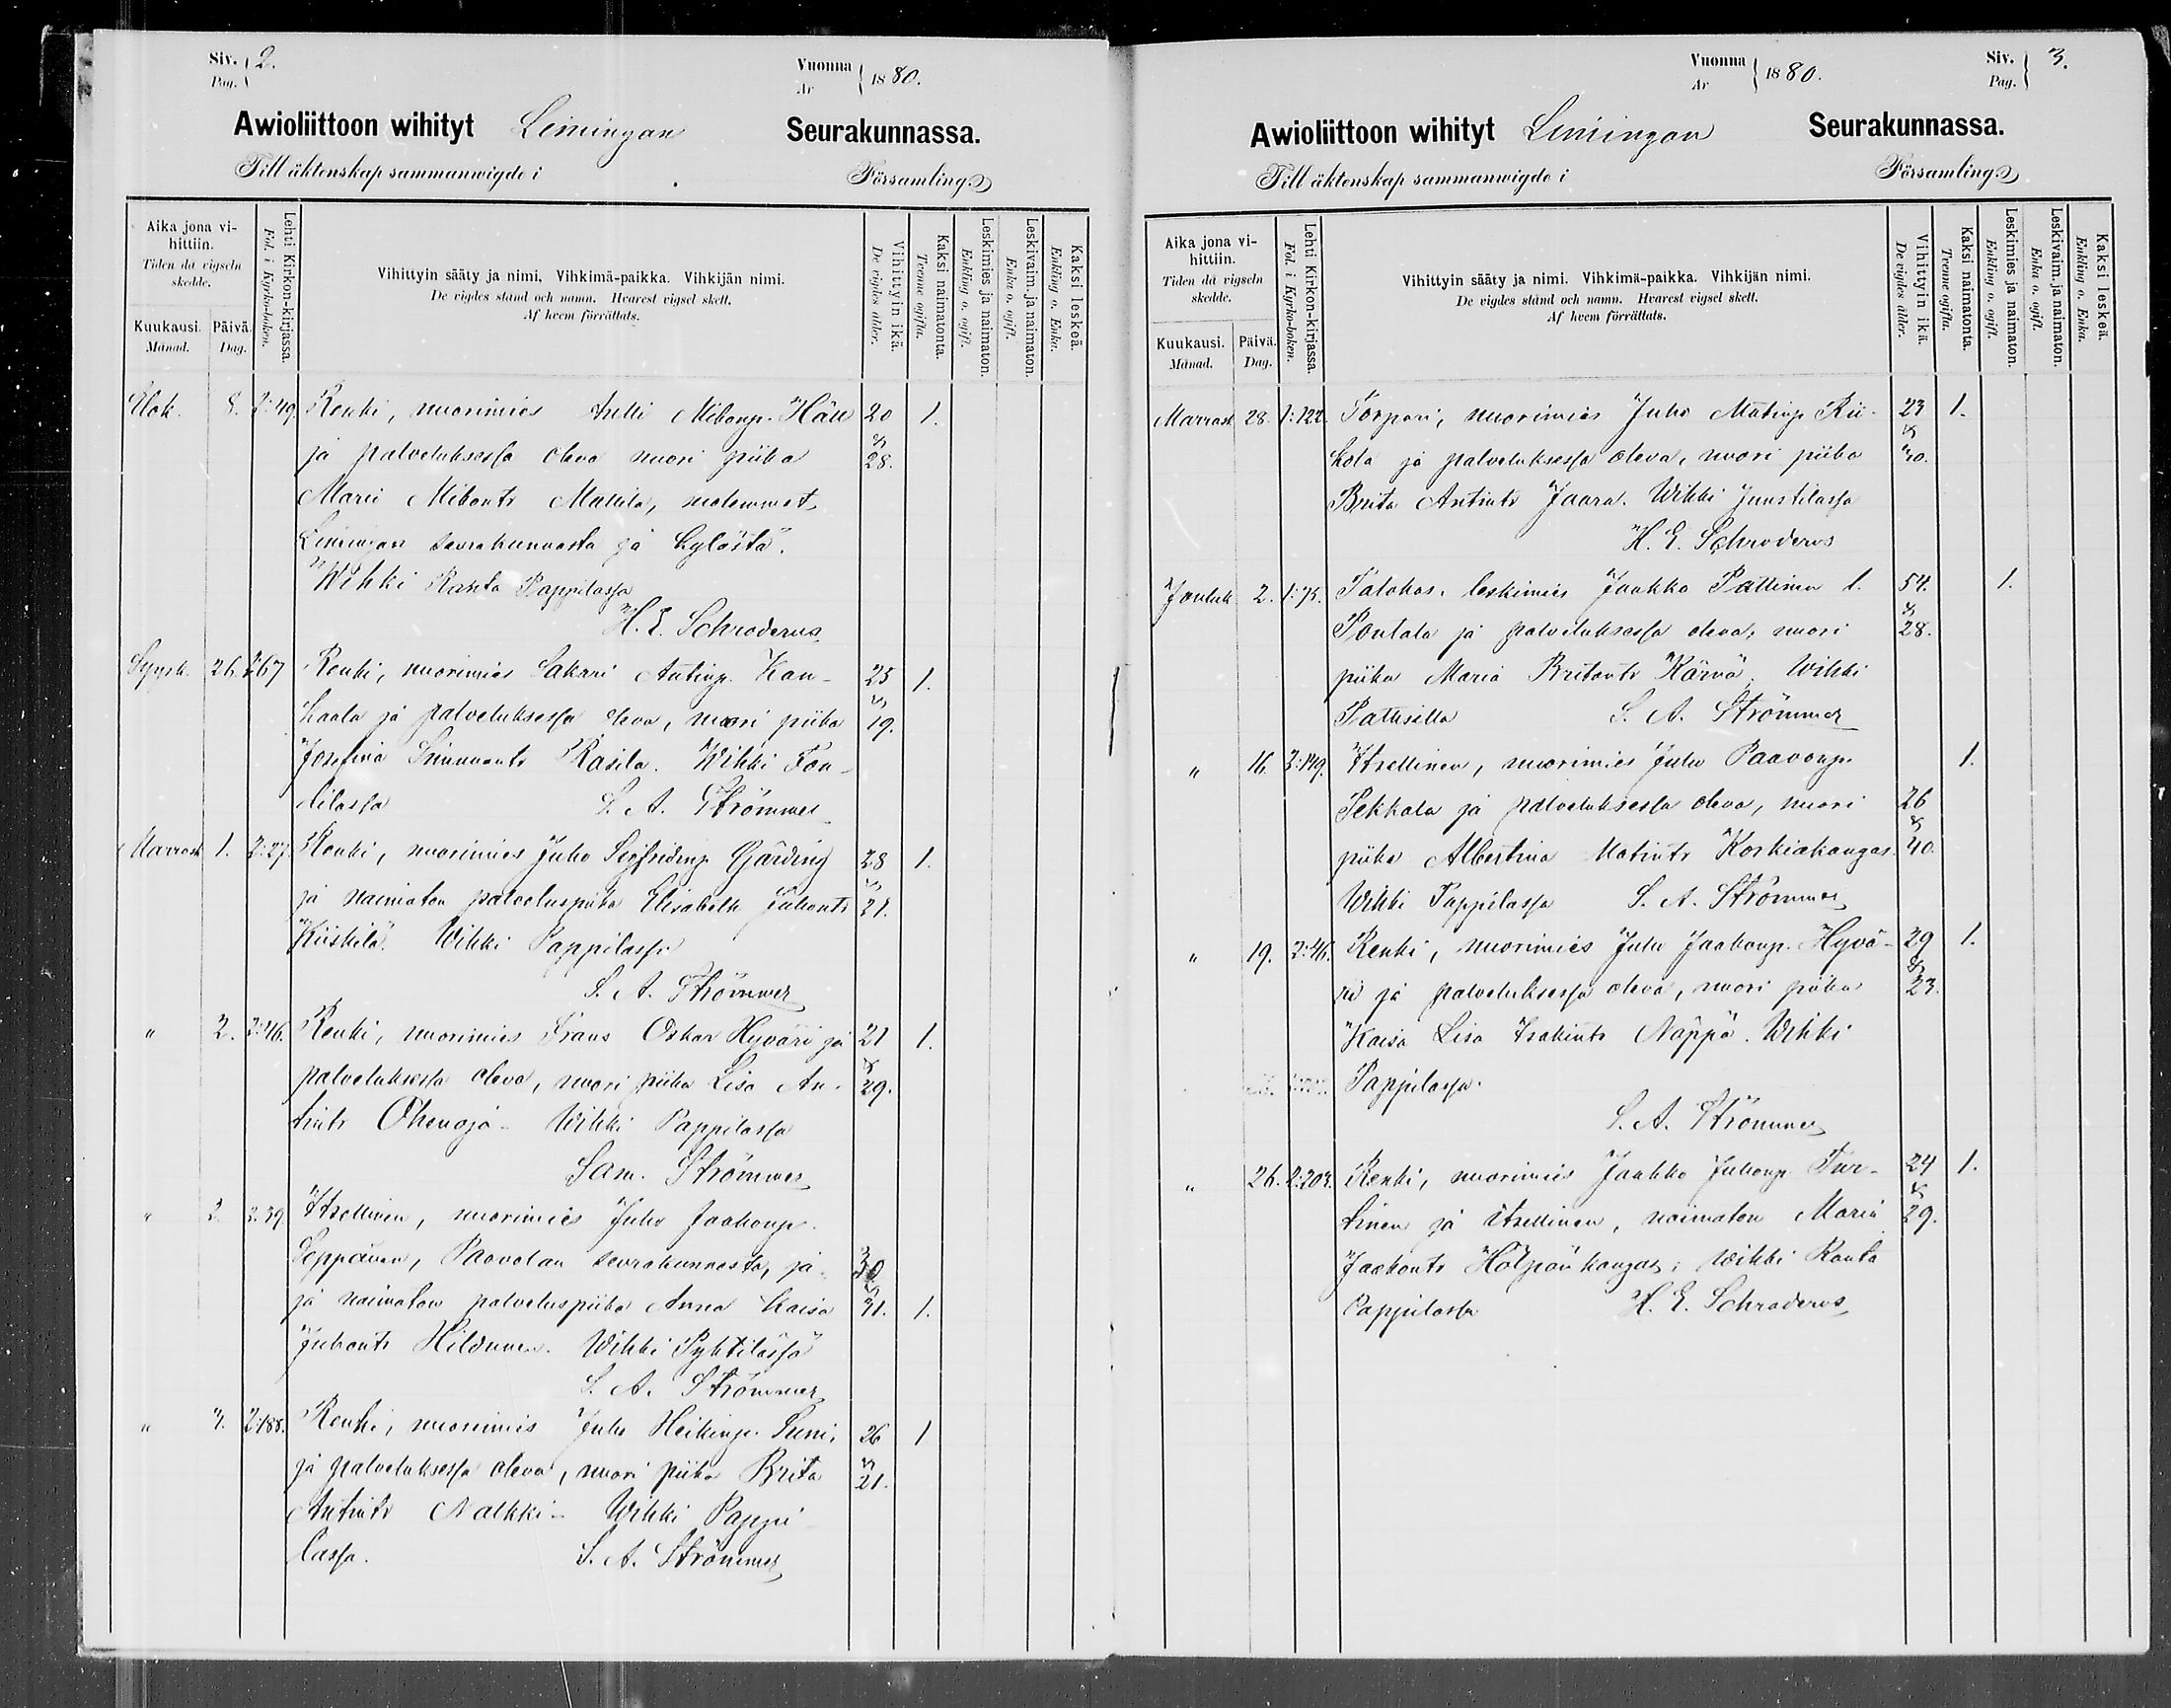 Siv. 2.
Pag.
Vuonna 1880.
År
Awioliittoon wihityt Limingan Seurakunnassa.
Till äktenskap sammanwigde i Församling
Aika jona vihittiin.
Tiden då vigseln skedde.
Kuukausi. Månad.
Päivä. Dag.
Lehti Kirkon-kirjassa.
Fol. i Kyrko-boken.
Vihittyin sääty ja nimi. Vihkimä-paikka. Vihkijän nimi.
De vigdes stånd och namn. Hvarest vigsel skett.
Af hvem förrättats.
Vihittyin ikä.
De vigdes ålder.
Kaksi naimatonta.
Tvenne ogifta.
Leskimies ja naimaton.
Enkling o. ogift.
Leskivaim. ja naimaton.
Enka o. ogift.
Kaksi leskeä.
Enkling o. Enka.
Elok. 8. 1:49. Renki, nuorimies Antti Mikonp. Häll 20 1.
ja palveluksessa oleva nuori piika & 28.
Maria Mikontr Mattila, molemmat
Limingan seurakunnasta ja kylästä.
Wihki Ranta Pappilassa
H. E. Schroderus
Syysk. 26. 2:67 Renki, nuorimies Sakari Antinp. Kan- 25 1.
kaala ja palveluksessa oleva, nuori piika & 19.
Josefina Rasila. Wihki Fon-
tilassa S. A. Strömmer
Marrask 1. 2:27. Renki, nuorimies Juho Sigfridinp Gärding 28 1.
ja naimaton palveluspiika Elisabeth Juhontr & 21.
Kiiskilä. Wihki Pappilassa
S. A. Strömmer
" 2. 2:46. Renki, nuorimies Frans Oskar Hyväri ja 21 1.
palveluksessa oleva, nuori piika Lisa An- & 29.
tintr Ohenoja - Wihki Pappilassa
Sam. Strömmer
" 2. 2:39. Itsellinen, nuorimies Juho Jaakonp.
Seppänen, Paavolan seurakunnasta, ja 30
ja naimaton palveluspiika Anna Kaisa & 31. 1.
Juhontr Hildunen. Wihki Pyhtilässä
S. A. Strömmer
" 7. 2:188. Renki, nuorimies Juho Heikinp. Suni, 26 1
ja palveluksessa oleva, nuori piika Brita & 21.
Antintr Nalkki - Wihki Pappi
lassa. S. A. Strömmer
Vuonna 1880.
År
Siv. 3.
Pag.
Awioliittoon wihityt Limingan Seurakunnassa.
Till äktenskap sammanwigde i Församling
Aika jona vihittiin.
Tiden då vigseln skedde.
Kuukausi. Månad.
Päivä. Dag.
Lehti Kirkon-kirjassa.
Fol. i Kyrko-boken.
Vihittyin sääty ja nimi. Vihkimä-paikka. Vihkijän nimi.
De vigdes stånd och namn. Hvarest vigsel skett.
Af hvem förrättats.
Vihittyin ikä.
De vigdes ålder.
Kaksi naimatonta.
Tvenne ogifta.
Leskimies ja naimaton.
Enkling o. ogift.
Leskivaim. ja naimaton.
Enka o. ogift.
Kaksi leskeä.
Enkling o. Enka.
Marrask 28. 1:122. Torpari, nuorimies Juho Matinp Rii- 23 1.
kola ja palveluksessa oleva, nuori piika & 30.
Brita Antintr Jaara. Wihki Junstilassa
H. E. Schroderus
Jouluk 2. 1:75. Talokas, leskimies Jaakko Pattinen l. 54. 1.
Pontala ja palveluksessa oleva, nuori & 28.
piika Maria Britantr Kärnä. Wihki
Patusilla S. A. Strömmer
" 16. 2:149. Itsellinen, nuorimies Juho Paavonp. 1.
Pekkala ja palveluksessa oleva, nuori 26
piika Albertina Matintr Korkiakangas. & 40.
Wihki Pappilassa S. A. Strömmer
" 19. 2:46. Renki, nuorimies Juho Jaakonp. Hyvä- 29 1.
ri ja palveluksessa oleva, nuori piika & 23.
Kaisa Lisa Isakintr Näppä. Wihki
Pappilassa.
S. A. Strömmer
" 26. 2:203. Renki, nuorimies Jaakko Juhonp Tur- 24 1.
tinen ja itsellinen, naimaton Maria & 29.
Jaakontr Hölpänkangas; Wihki Ranta
Pappilassa H. E. Schroderus